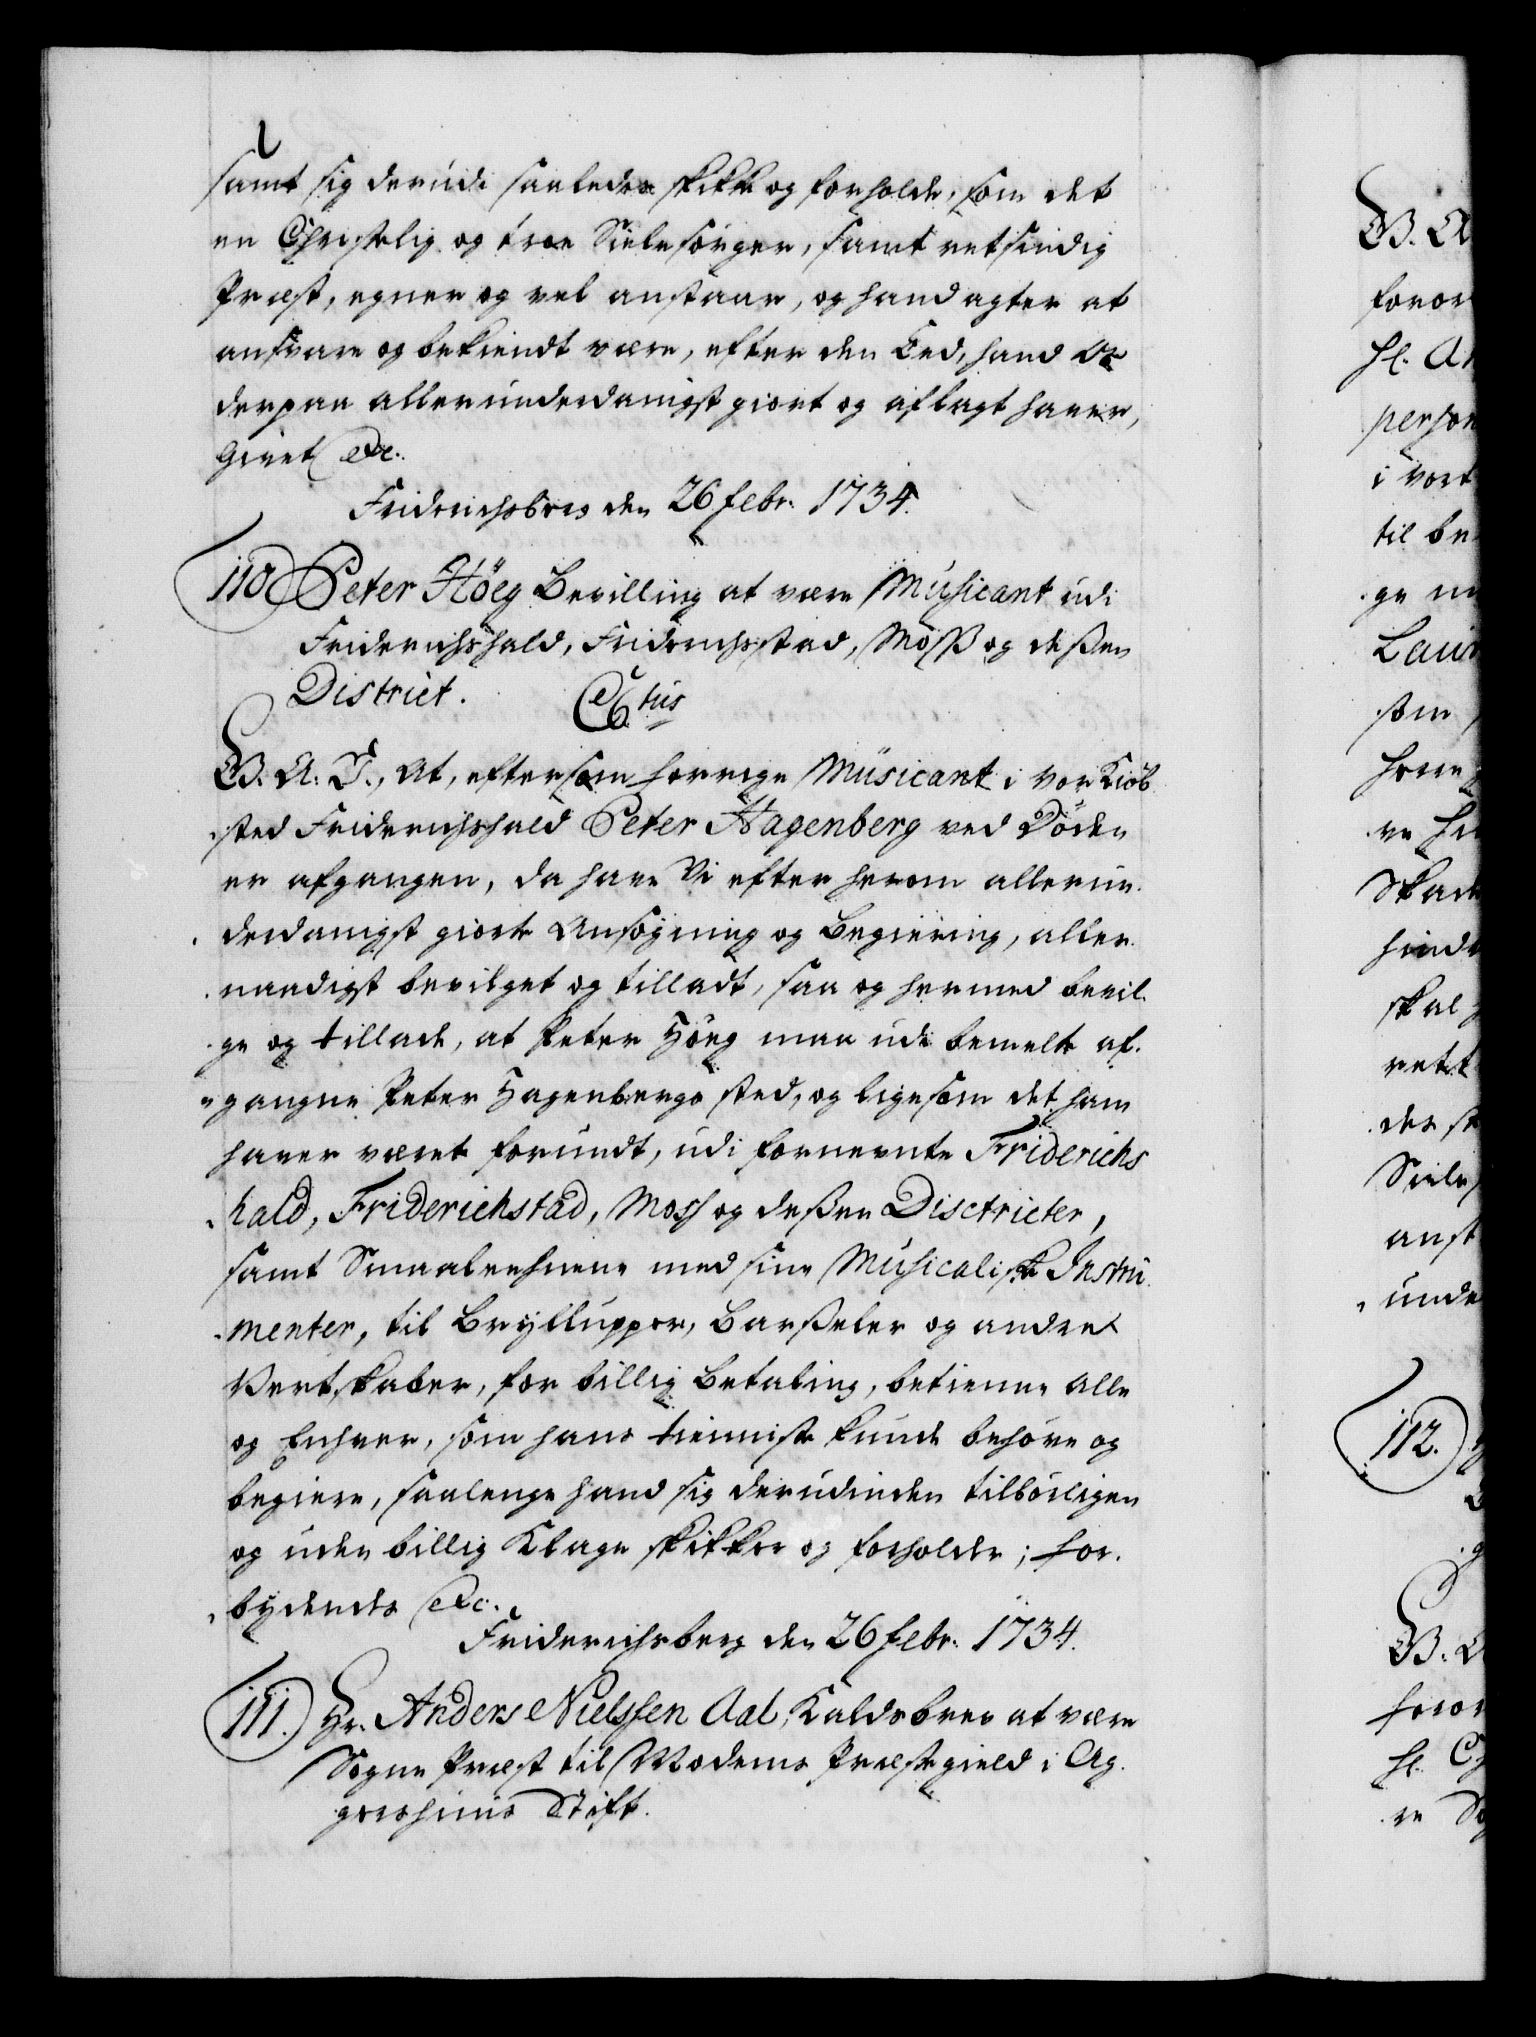 samt sig derudi saaledes skikke og forholde, som det
en Christelig og troe Sielesörger, samt retsindig
Præst, egner og vel anstaar, og hand agter at
ansvare og bekiendt være, efter den Eed, hand Os
derpaa allerunderdanigst giort og aflagt haver,
Givet etc.
Friderichsberg den 26 febr. 1734.
110 Peter Höeg Bevilling at være Musicant udi
Friderichshald, Friderichsstad, Moss og deßen
District. C 6tus
G. A. V., At, eftersom forrige Musicant i vor Kiöb
sted Friderichshald Peter Hagenberg ved Döden
er afgangen, da have Vi efter herom allerun
derdanigst giorte Ansögning og Begiering, aller
naadigst bevilget og tilladt, saa og hermed bevil
ge og tillade, at Peter Höeg maa udi bemelte af
gangne Peter Hagenbergs sted, og ligesom det ham
haver været forundt, udi fornevnte Friderichs
hald, Friderichstad, Moss og deßen Disctricter,
samt Smaalenhnene med sine Musicaliske Instru
menter, til Brylluppper, Barßeler og andre
Vertskaber, for billig Betaling, betienne Alle
og Enhver, som hans tienniste kunde behöve og
begiere, saalenge hand sig derudinden tilbörligen
og uden billig Klage skikker og forholder; for
bydendes etc.
Friderichsberg den 26 febr. 1734.
111. Hr. Anders Nielssen Aal, Kaldsbrev at være
Sogne Præst til Modems Præstegield i Ag
gershuus Stift.
112.